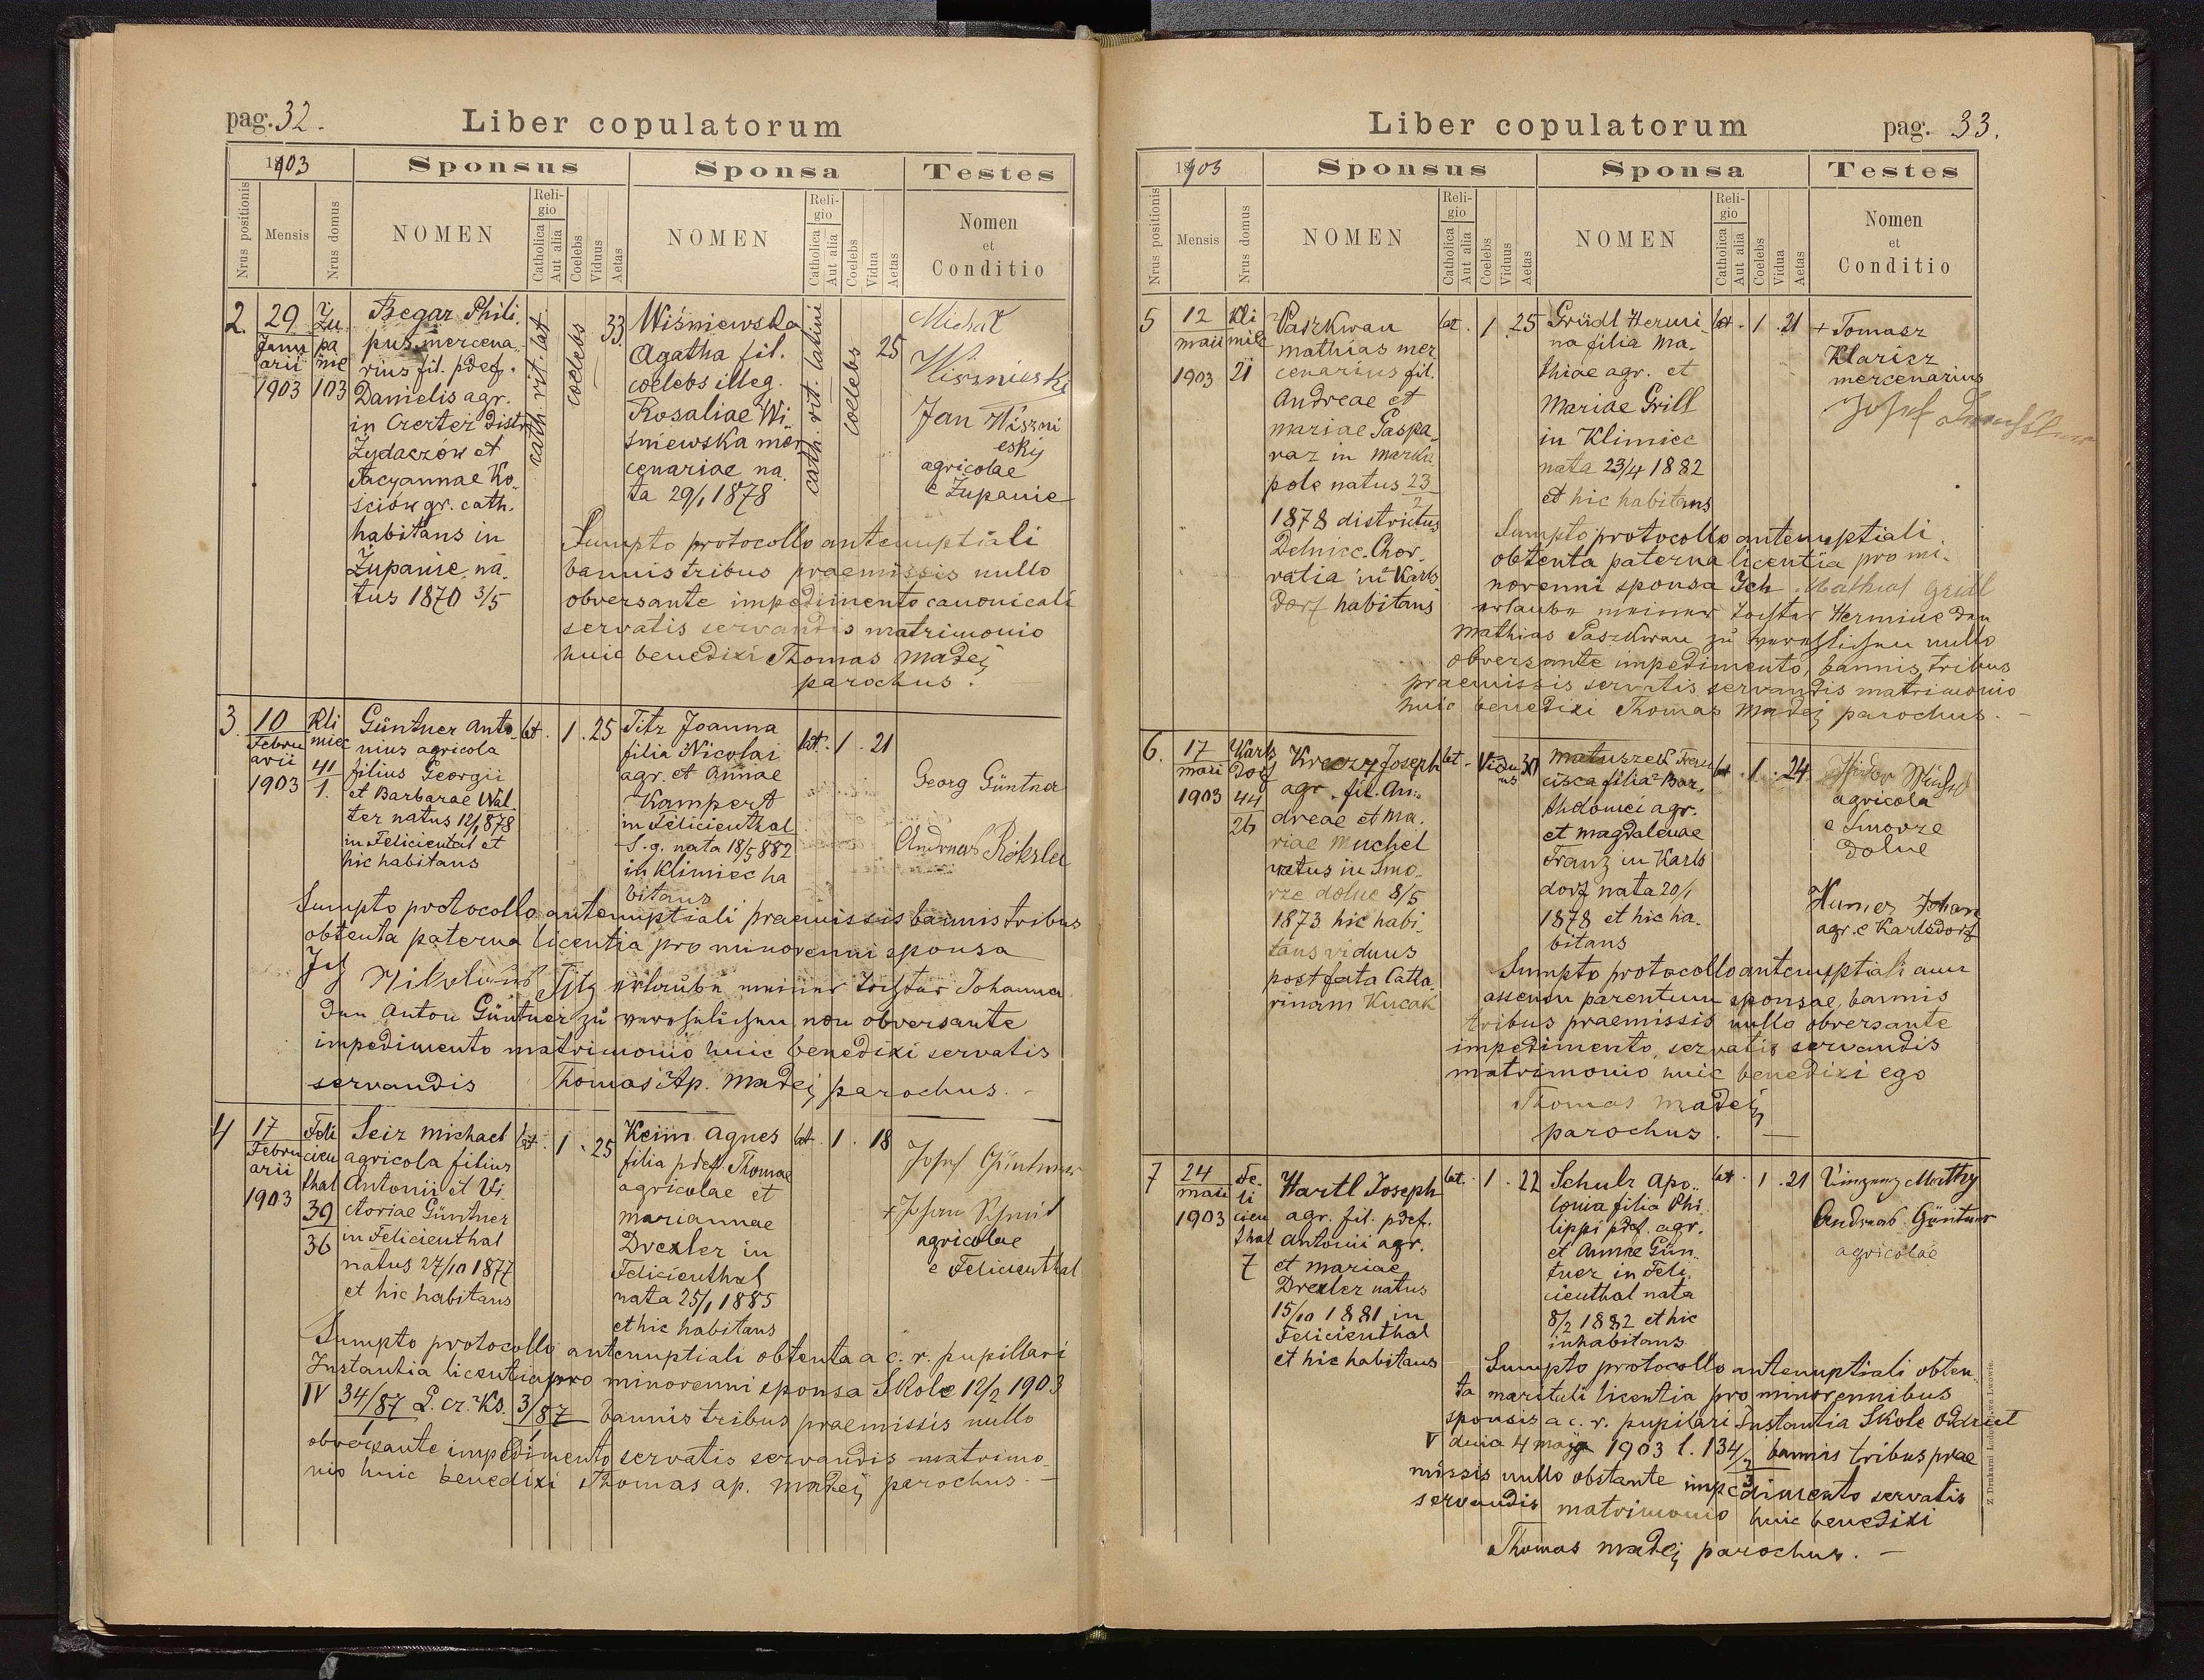 pag. 32.
Liber copulatorum
1903
Sponsus
Sponsa
Testes
Nrus positionis
Mensis
Nrus domus
NOMEN
Religio
Catholica
Aut alia
Coelebs
Viduus
Aetas
NOMEN
Religio
Catholica
Aut alia
Coelebs
Vidua
Aetas
Nomen
et
Conditio
2.
29
Janu
arii
1903
Żu
pa
nie
103
Begar Phili.
pus mercena..
rius fil. pdef.
Danielis agr.
in Czertez distr
Żydaczów et
Tacyannae Ko..
sciów gr. cath.
habitans in
Żupanie na.
tus 1870 3/5
cath. rit. lat.
coelebs
33
Wiśniewska
Agatha fil.
coelebs illeg.
Rosaliae Wi..
śniewska mer
cenariae na.
ta 29/1 1878
cath. rit. latini
coelebs
25
Michał
Wiszniewski
Jan Wiszni
eskij
agricolae
e Żupanie
Sumpto protocollo antenuptiali
bannis tribus praemissis nullo
obversante impedimento canonicali
servatis servandis matrimonio
huic benedixi Thomas Madej
parochus.
3.
10
Febru
arii
1903
Kli
miec
41
1.
Güntner Anto..
nius agricola
filius Georgii
et Barbarae Wal..
ter natus 12/1 878
in Feliciental et
hic habitans
lat. 1. 25
Titz Joanna
filia Nicolai
agr. et Annae
Kampert
in Felicienthal
S. g. nata 18/5 882
in Klimiec ha
bitans
lat. 1. 21
Georg Güntner
Andreas Röksler
Sumpto protocollo antenuptiali praemissis bannis tribus
obtenta paterna licentia pro minorenni sponsa
Ich Nikolaus Titz erlaube meiner Tochter Johanna
den Anton Güntner zu verehelichen, non obversante
impedimento matrimonio huic benedixi servatis
servandis Thomas Ap. Madej parochus. -
4
17
Febru
arii
1903
Feli
cien
thal
39
36
Seiz Michael
agricola filius
Antonii et Vi.
ctoriae Güntner
in Felicienthal
natus 27/10 1877
et hic habitans
lat. 1. 25
Keim Agnes
filia pdef. Thomae
agricolae et
Mariannae
Drexler in
Felicienthal
nata 25/1 1885
et hic habitans
lat. 1. 18
Josef Güntner
+ Johann Schmid
agricolae
e Felicienthal
Sumpto protocollo antenuptiali obtenta a c. r. pupillari
Instantia licentia pro minorenni sponsa Skole 12/2 1903
IV 34/87 L. cr. Ks. 3/87 bannis tribus praemissis nullo
1 1
obversante impedimento servatis servandis matrimo
nio huic benedixi Thomas ap. Madej parochus. -
Liber copulatorum
pag. 33.
1903
Sponsus
Sponsa
Testes
Nrus positionis
Mensis
Nrus domus
NOMEN
Religio
Catholica
Aut alia
Coelebs
Viduus
Aetas
NOMEN
Religio
Catholica
Aut alia
Coelebs
Vidua
Aetas
Nomen
et
Conditio
5
12
maii
1903
Kli
miec
21
Paszkwan
Mathias mer
cenarius fil.
Andreae et
Mariae Gaspa..
raz in Marko.
pole natus 23
2
1878 districtus
Delnice Chor.
vatia in Karls
dorf habitans
lat. 1. 25
Grüdl Hermi..
na filia Ma..
thiae agr. et
Mariae Grill
in Klimiec
nata 23/4 1882
et hic habitans
lat. 1. 21
+ Tomasz
Klarisz
mercenarius
Josef
Sumpto protocollo antenuptiali
obtenta paterna licentia pro mi..
norenni sponsa Ich Mathias Gridl
erlaube meiner Tochter Hermine den
Mathias Paszkwan zu verehelichen nullo
obversante impedimento, bannis tribus
praemissis servatis servandis matrimonio
huic benedixi Thomas Madej parochus. -
6.
17
maii
1903
Karls
dorf
44
26
Kreczy Joseph
agr. fil. An..
dreae et Ma.
riae Muchel
natus in Smo..
rze dolne 8/5
1873 hic habi..
tans viduus
post fata Catha.
rinam Kucak
lat. Vidu
us 30
Matuszek Fran
cisca filia Bar.
tholomei agr.
et Magdalenae
Franz in Karls
dorf nata 20/1
1878 et hic ha.
bitans
lat. 1. 24
agricola
e Smorze
dolne
Humer Johan
agr. e Karlsdorf
Sumpto protocollo antenuptiali cum
assensu parentum sponsae, bannis
tribus praemissis nullo obversante
impedimento, servatis servandis
matrimonio huic benedixi ego
Thomas Madej
parochus. —
7
24
maii
1903
Fe..
li
cien
thal
7
Hartl Joseph
agr. fil. pdef.
Antonii agr.
et Mariae
Drexler natus
15/10 1881 in
Felicienthal
et hic habitans
lat. 1. 22
Schulz Apo..
lonia filia Phi.
lippi pdef. agr.
et Annae Gün..
tner in Feli.
cienthal nata
8/2 1882 et hic
inhabitans
lat. 1. 21
Vinzenz Mutthy
Andreas Güntner
agricolae
Sumpto protocollo antenuptiali obten..
ta maritali licentia pro minorennibus
sponsis a c. r. pupilari Instantia Skole Oddział
V dnia 4 maja 1903 l. 134/2 bannis tribus prae
3
missis nullo obstante impedimento servatis
servandis matrimonio huic benedixi
Thomas Madej parochus. -
Z Drukarni Ludowej we Lwowie.